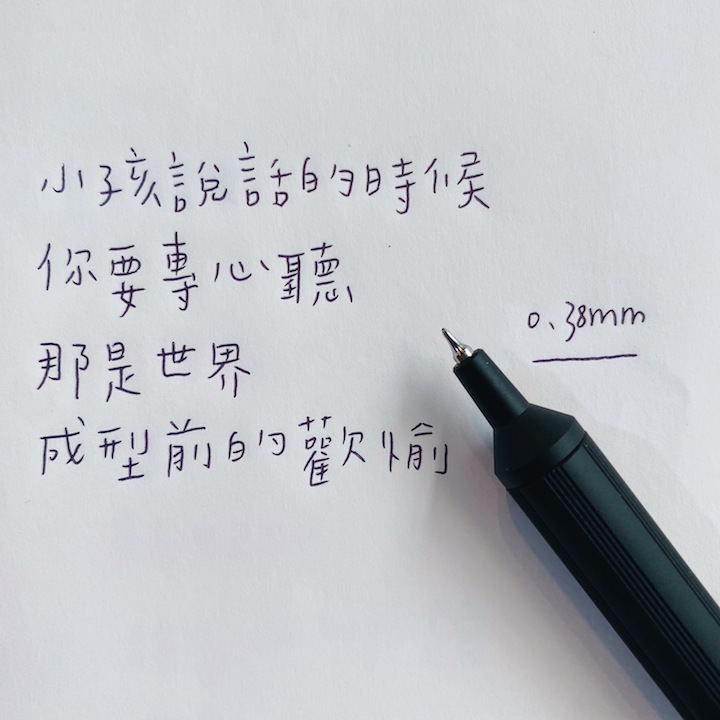 小孩說話的時候
你要專心聽
那是世界
0.38mm
成型前的歡愉